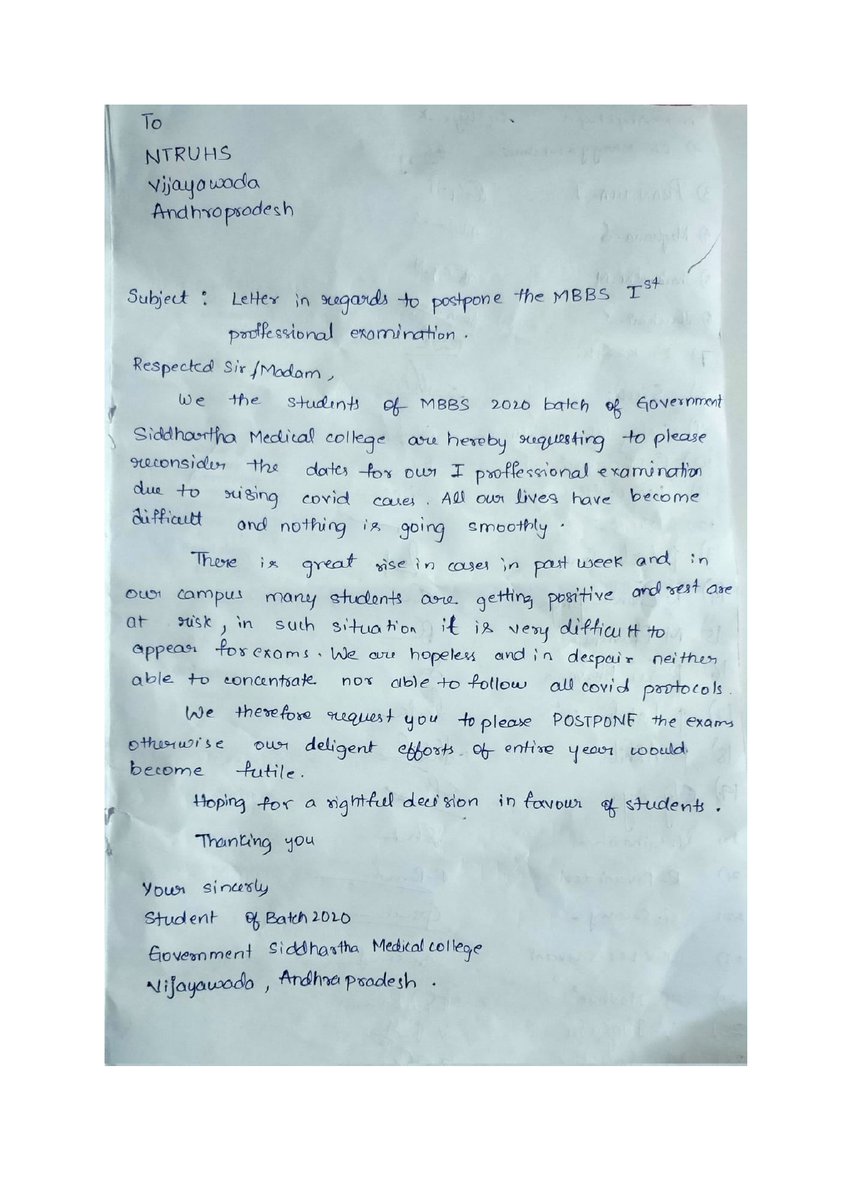 To
NTRUHS
Vijayawada
Andhrapradesh
Subject : Letter in regards to postpone the MBBS Ist
proffessional examination.
Respected Sir/Madam,
We the students of MBBS 2020 batch of Government
Siddhartha Medical college are hereby requesting to please
reconsider the dates for our I proffessional examination
due to rising covid cases. All our lives have become
difficult and nothing is going smoothly.
There is great rise in cases in past week and in
our campus many students are getting positive and rest are
at risk, in such situation it is very difficult to
appear for exams. We are hopeless and in despair neither
able to concentrate nor able to follow all covid protocols.
We therefore request you to please POSTPONE the exams
otherwise our deligent efforts of entire year would
become futile.
Hoping for a rightful decision in favour of students.
Thanking you
Your sincerly
Student of Batch 2020
Government Siddhartha Medical college
Vijayawada, Andhra pradesh.